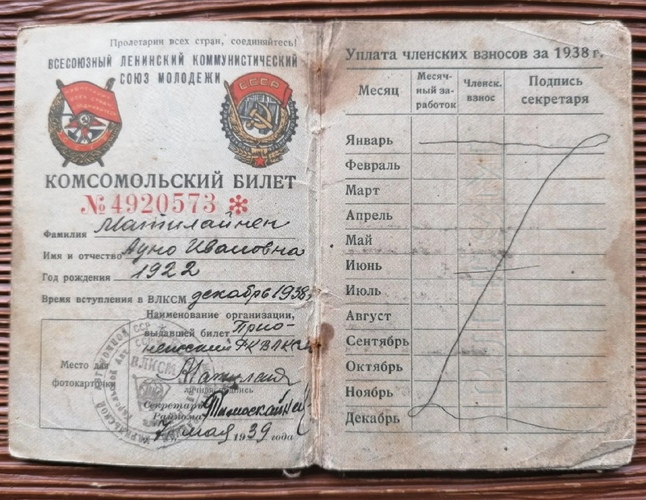 Пролетарии всех стран, соединяйтесь!
ВСЕСОЮЗНЫЙ ЛЕНИНСКИЙ КОММУНИСТИЧЕСКИЙ
СОЮЗ МОЛОДЕЖИ
СССР
КОМСОМОЛЬСКИЙ БИЛЕТ
№ 4920573 *
Фамилия Матилайнен
Имя и отчество Ауно Ивановна
Год рождения 1922
Время вступления в ВЛКСМ декабрь 1938 г.
Наименование организации,
выдавшей билет Прио-
нежский РК ВЛКСМ
Место для
фотокарточки
ВЛКСМ
личная подпись
Секретарь
Райкома
мая 1939 года
Уплата членских взносов за 1938 г.
Месяц
Месяч-
ный за-
работок
Членск.
взнос
Подпись
секретаря
Январь
Февраль
Март
Апрель
Май
Июнь
Июль
Август
Сентябрь
Октябрь
Ноябрь
Декабрь